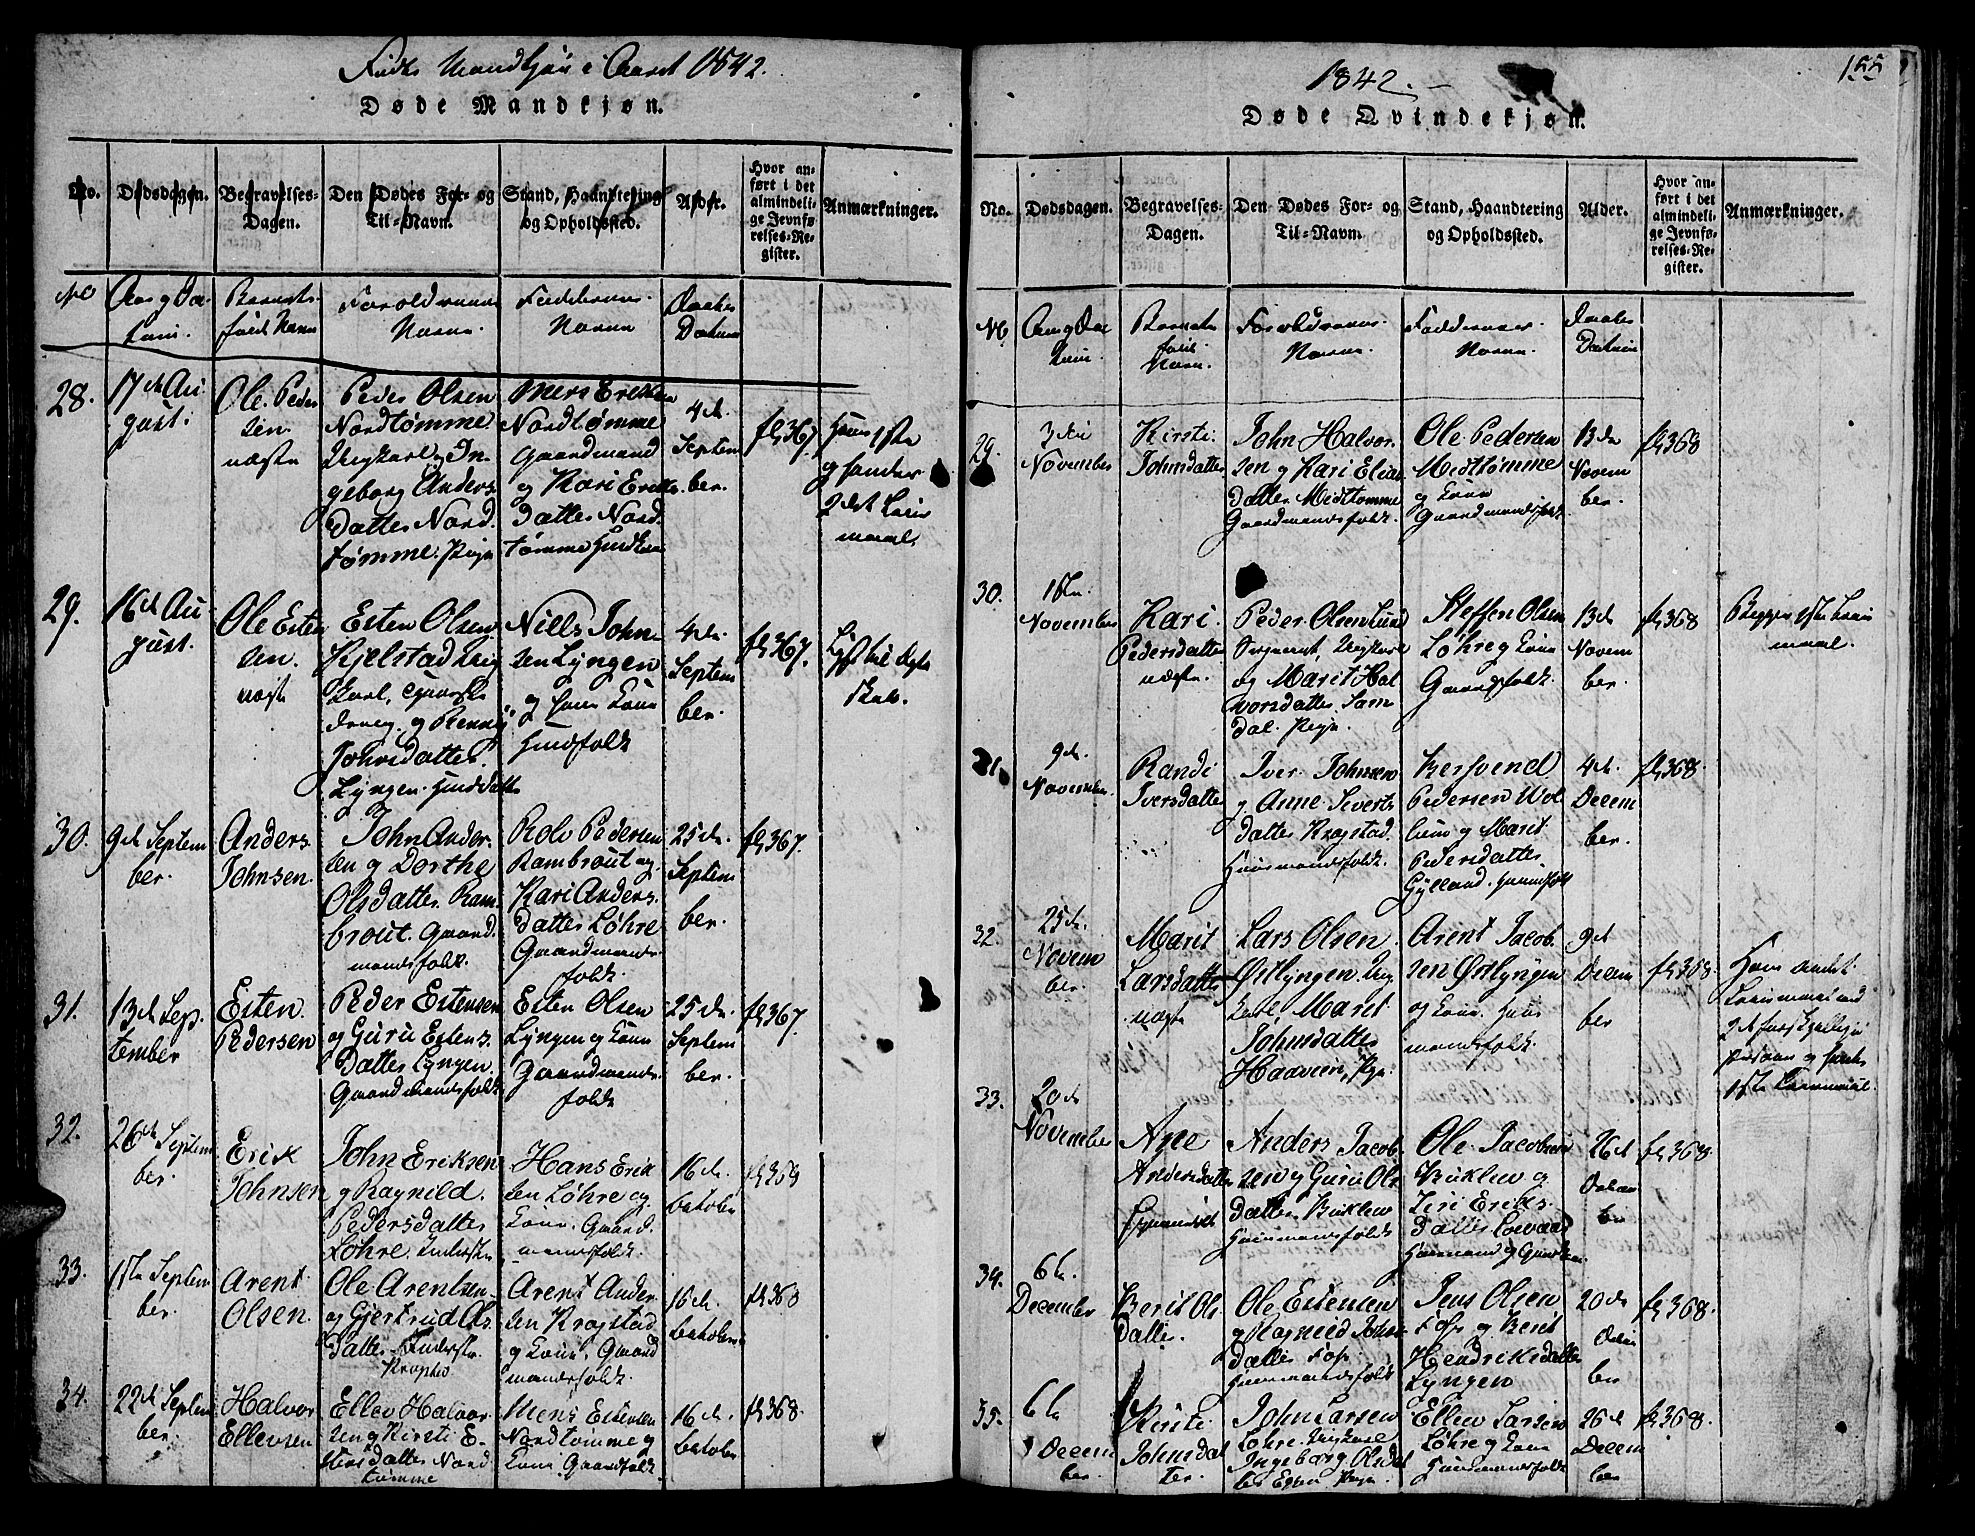 Fødte Mandkjøn i Aaret 1842.
Døde Mandkjøn.
No.
Dødsdagen.
Begravelses-
Dagen.
Den Dødes For- og
Til-Navn.
Stand, Haandtering
og Opholdssted.
Alder.
Hvor an-
ført i det
almindeli-
ge Jevnfø-
relses-Re-
gister.
Anmærkninger.
No
Aar og Da-
tum.
Barnets
fulde Navn
Forældrenes
Navne.
Faddernes
Navne
Daabs
Datum
28.
17de Au
gust.
Ole Peder
sen
uægte
Peder Olsen
Nordtømme
Ungkarl og In
geborg Anders
Datter Nord
tømme. Pige
Mens Eriksen
Nordtømme
Gaardmand
og Kari Eriks
Datter Nord
tømme
4de
Septem
ber.
fl 367.
Hans 1ste
og hendes
2det Leier
maal.
29.
16de Au-
gust.
Ole Esten
sen.
uægte
Esten Olsen
Kjelstad Ung
karl,
og
Johnsdatter
Lyngen.
Niels John
sen Lyngen
og hans Kone
4de
Septem
ber.
fl 367.
30.
9de Septem
ber.
Anders
Johnsen.
John Ander-
sen og Dorthe
Olsdatter Ram
brout. Gaard
mandsfolk.
Rolv Pedersen
Rambrout og
Kari Anders
Datter Løhre
Gaardmands
folk.
25de
Septem
ber.
fl 367.
31.
13de Sep
tember
Esten
Pedersen
Peder Estensen
og Guru Estens
Datter Lyngen.
Gaardmandsfolk
Esten Olsen
Lyngen og Kone
Gaardmands
folk
25de
Septem
ber.
fl 367.
32.
26de Septem
ber.
Erik
Johnsen
John Eriksen
og Ragnild
Pedersdatter
Løhre.
Hans Erik
sen Løhre og
Kone. Gaard
mandsfolk.
16de
October
33.
1ste Septem
ber.
Arent
Olsen
Ole Arentsen
og Gjertrud Ols
Datter
Arent Ander
sen Kragstad
og Kone, Gaard
mandsfolk.
16de
October
fl 368
34.
22de Septem
ber.
Halvor
Ellevsen
Ellev Halvor
sen og Kirsti E-
Datter Nord
tømme
Mens Estensen
Nordtømme og
Kone Gaardfolk
16de
October
fl 368.
1842.
155
Døde Qvindekjøn.
No.
Dødsdagen.
Begravelses-
Dagen.
Den Dødes For- og
Til-Navn.
Stand, Haandtering
og Opholdssted.
Alder.
Hvor an-
ført i det
almindeli-
ge Jevnfø-
relses-Re-
gister.
Anmærkninger.
No
Aar og Da
tum.
Barnets
fulde
Navn.
Forældrenes
Navne.
Faddernes
Navne.
Daabs
Datum
29.
3die
November
Kirsti
Johnsdatter
John Halvor
sen og Kari Elias
Datter Midttømme
Gaardmandsfolk.
Ole Pedersen
Midttømme
og Kone
Gaardmandsfolk
13de
Novem
ber
fl 368
30.
1ste
November
Kari
Pedersdatter
uægte.
Peder Olsen Lund
Ungkarl
og Marit Hal
vorsdatter Sam
dal. Pige
Steffen Olsen
Løhre og Kone
Gaardsfolk.
13de
Novem
ber.
fl 368
Begges 1ste Leier
maal.
31.
9de
November.
Randi
Iversdatter
Iver Johnsen
og Anne Siverts
datter Kragstad
Huusmandsfolk.
Bersvend
Pedersen Wol
lum og Marit
Pedersdatter
Gylland.
4de
Decem
ber.
fl 368.
32.
25de
Novem
ber.
Marit
Larsdatter
uægte
Lars Olsen
Østlyngen Ung
karl Marit
Johnsdatter
Haavien, Pige
Arent Jacob
sen Østlyngen
og Kone. Huus
mandsfolk.
9de
Decem
ber
fl 368.
Hans andet
Leiermaal med
2det
Person og hendes
1ste Leiermaal.
33.
20de
November
Ane
Andersdatter
Anders Jacob
sen og Guru Ols
Datter Buklev
Huusmandsfolk.
Ole Jacobsen
Buklev og
Siri Eriks
Datter
26de
fl 368.
34.
6te
December
Berit Ols
datter.
Ole Estensen
og Ragnild Johns
Datter Foss.
Huusmandsfolk
Jens Olsen
Foss og Berit
Hendriksdatter
Lyngen
20de
fl 368.
35.
6te
Decem
ber.
Kirsti
Johnsdat
ter.
John Larsen
Løhre. Ungkarl
Ingeborg Olsdat
ter Pige
Ellev Larsen
Løhre og Kone
Huusmandsfolk
26de
Decem
ber
fl 368.